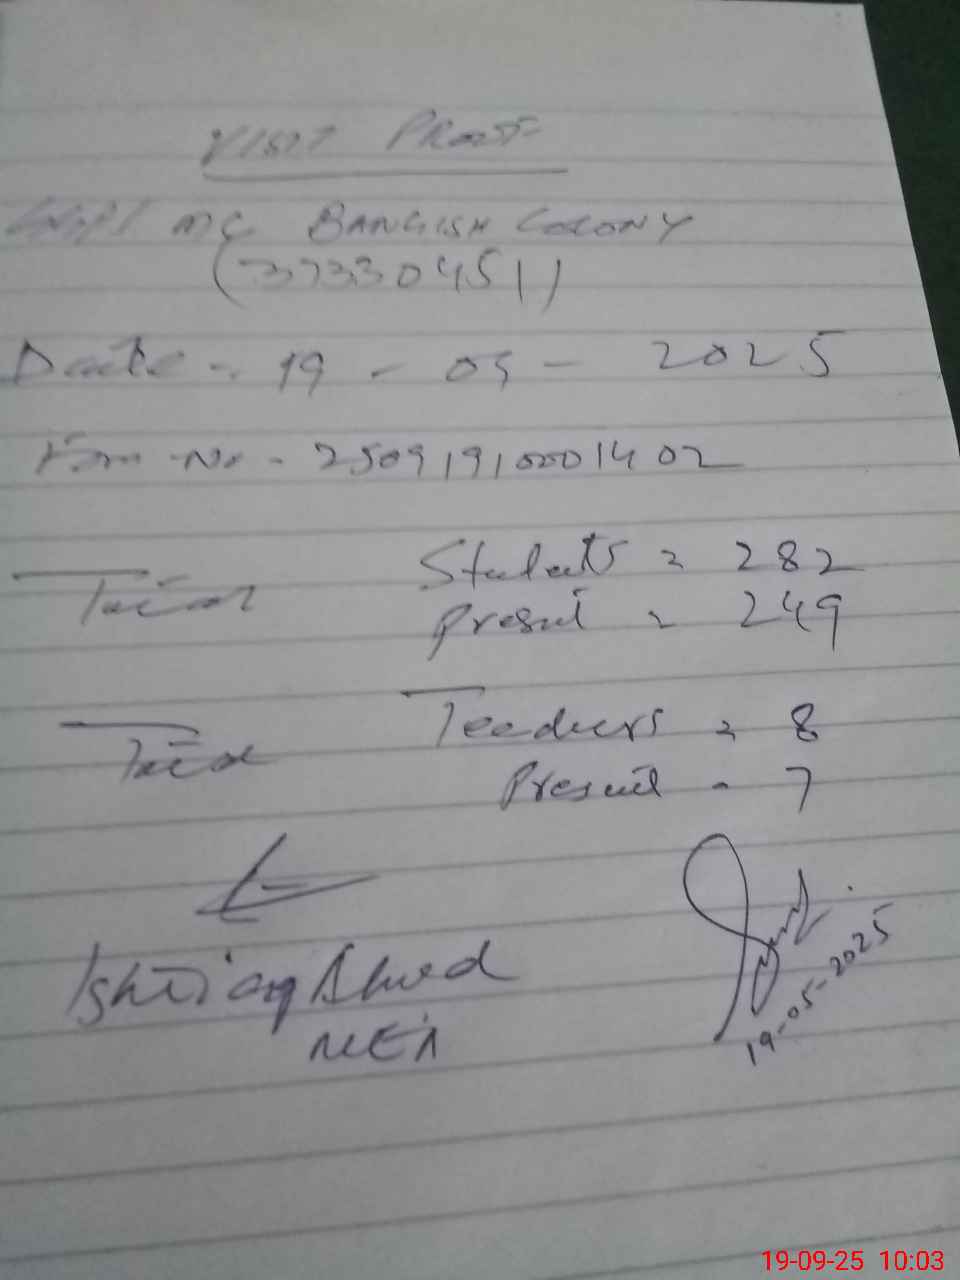 VISIT PROOF
MC BANGISH COLONY
(37330451)
Date - 19 - 09 - 2025
Form No - 250919100001402
Total Students = 282
Present = 249
Total Teachers = 8
Present - 7
Ishtiaq Ahmed
MEA
19-05-2025
19-09-25 10:03